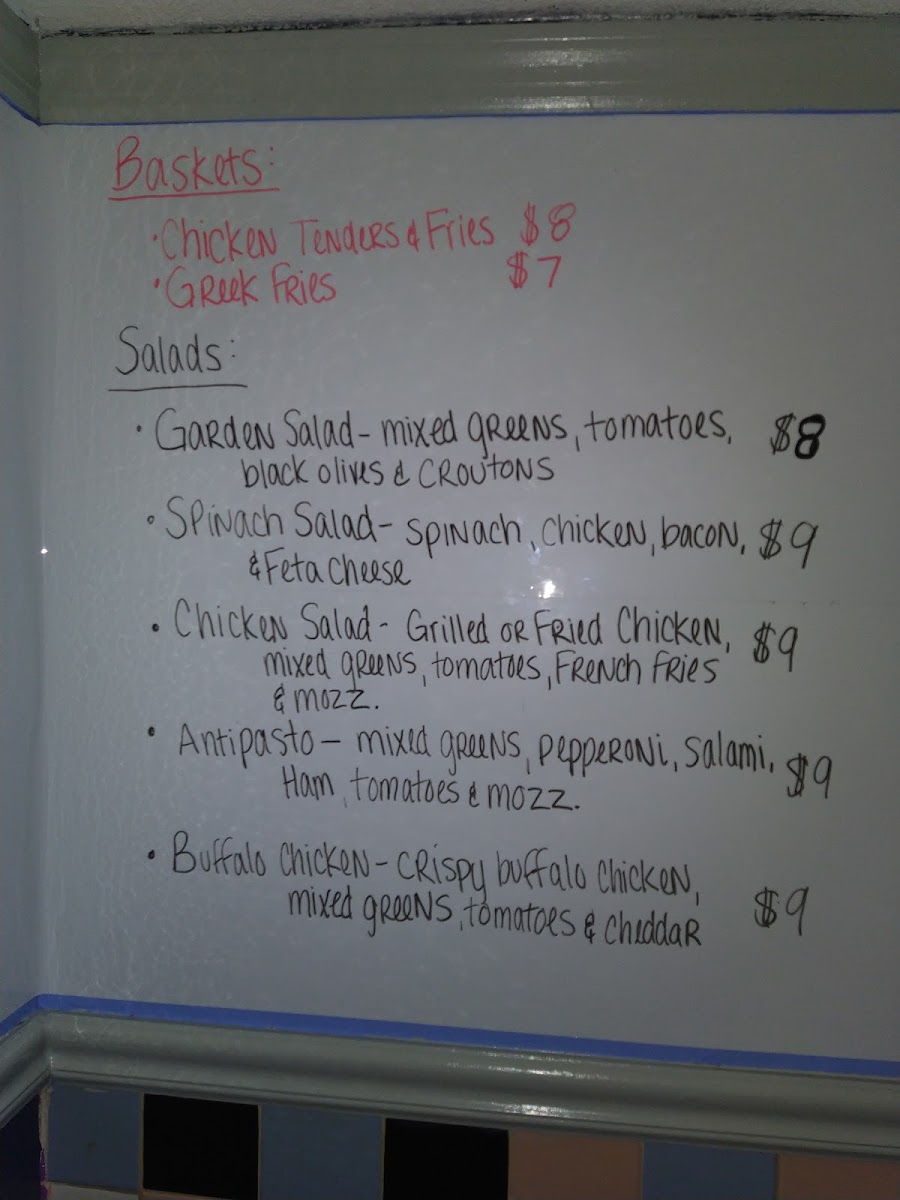 Baskets:
• Chicken Tenders & Fries $8
• Greek Fries $7
Salads:
• Garden Salad - mixed greens, tomatoes, $8
black olives & croutons
• Spinach Salad - spinach, chicken, bacon, $9
& Feta cheese
• Chicken Salad - Grilled or Fried Chicken, $9
mixed greens, tomatoes, French fries
& mozz.
• Antipasto - mixed greens, pepperoni, salami, $9
Ham, tomatoes & mozz.
• Buffalo Chicken - crispy buffalo chicken,
mixed greens, tomatoes & cheddar $9